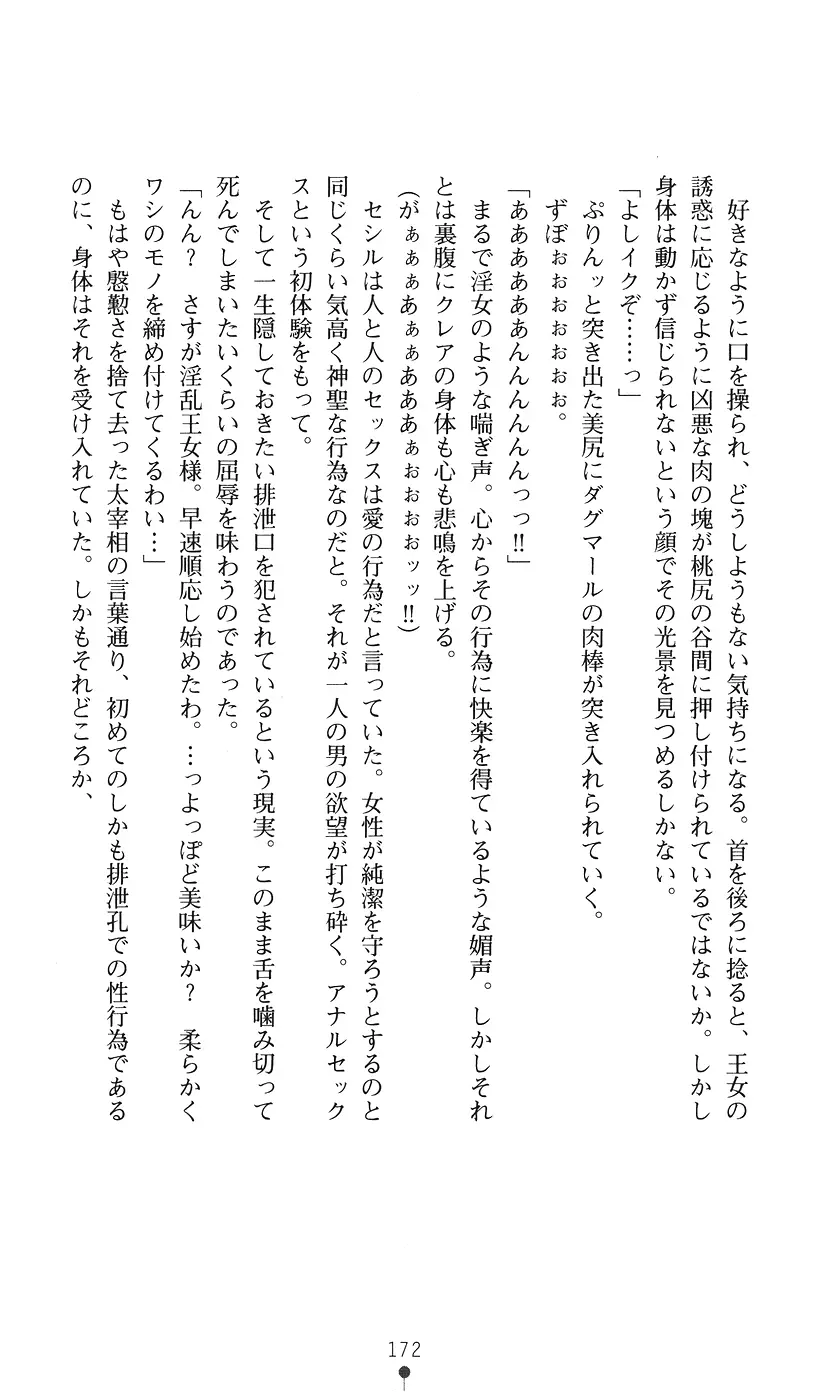 好きなように口を操られ、どうしようもない気持ちになる。首を後ろに捻ると、王女の
誘惑に応じるように凶悪な肉の塊が桃尻の谷間に押し付けられているではないか。しかし
身体は動かず信じられないという顔でその光景を見つめるしかない。
「よしイクぞ……っ」
ぷりんッと突き出た美尻にダグマールの肉棒が突き入れられていく。
ずぼぉぉぉぉぉぉぉ。
「ああああああんんんんんんっっ‼」
まるで淫女のような喘ぎ声。心からその行為に快楽を得ているような媚声。しかしそれ
とは裏腹にクレアの身体も心も悲鳴を上げる。
(がぁぁぁあぁぁあああぁぉぉぉぉッッ‼)
セシルは人と人のセックスは愛の行為だと言っていた。女性が純潔を守ろうとするのと
同じくらい気高く神聖な行為なのだと。それが一人の男の欲望が打ち砕く。アナルセック
スという初体験をもって。
そして一生隠しておきたい排泄口を犯されているという現実。このまま舌を噛み切って
死んでしまいたいくらいの屈辱を味わうのであった。
「んん？　さすが淫乱王女様。早速順応し始めたわ。…っよっぽど美味いか？　柔らかく
ワシのモノを締め付けてくるわい…」
もはや慇懃さを捨て去った太宰相の言葉通り、初めてのしかも排泄孔での性行為である
のに、身体はそれを受け入れていた。しかもそれどころか、
172